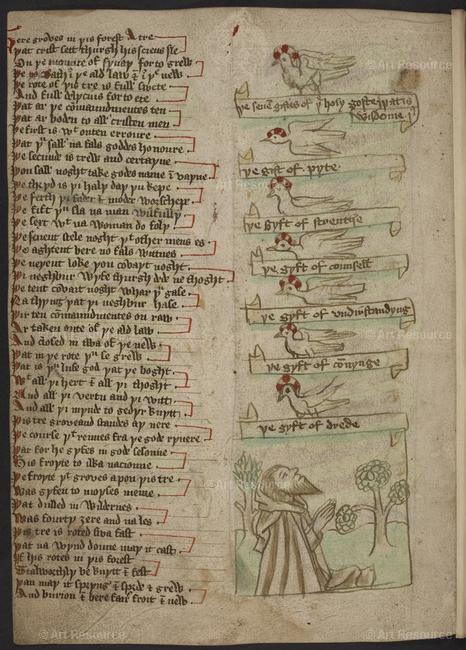 Here groves in þis forest A tre
þat crist sett thurgh his sciens sle
On þe mounte of synay for to grew
þe rote of þis tre is full swete
And full delycius for to ete
þat ar þe comaundmentes ten
þat ar boden to all cristen men
þe fyrst is wt outen erroure
þat þu sall na fals goddes honoure
þe secund is trew and certayne
þou sall noght take godes name ī vayne
þe thyrd is þi haly day þu kepe
þe ferth þi fader & moder worschepe
þe fift þu sla na man wilfully
þe sext wt na woman do foly
þe seuent stele noght þt other mens es
þe aghtent bere no fals witnes
þe neyent loke þou covayt noght
þi neghbur wyfe thurgh dede ne thoght
þe tent covait noght whar þu gase
Na thyng þat þi neghbur hase
þir ten cōmaundmentes on raw
Ar taken oute of þe ald law
And closed in twa of þe new
þat in þe rote þu se grew
þat is þu lufe god þat þe boght
Wt all þi hert & all þi thoght
And all þi vertu and þi witt
And all þi mynde to gedyr knytt
þis tre groves and standes ay nere
þe course þt rennes fra þe gode ryuere
þat for he gyfes in gode sesoune
His froyte to ilka nacioune
þe froyte þt groves apon þis tre
Was gyfen to moyses
þat dwelled in wildernes
Was fourty zere and na les
þis tre is roted swa fast
þat na wynd doune may it cast
If his rotes in þis forest
Stalworthly be knytt & fest
þan may it spryng & sprede & grew
And burion & bere fair froit & new
þe seuē giftes of þe holy goste þat is
wisdome
þe gift of pyte
þe gyft of strenthe
þe gyft of counsell
þe gyft of vndirstandyng
þe gyft of cōnynge
þe gyft of drede
© Art Resource
© Art Resource
© Art Resource
© Art Resource
© Art Resource
© Art Resource